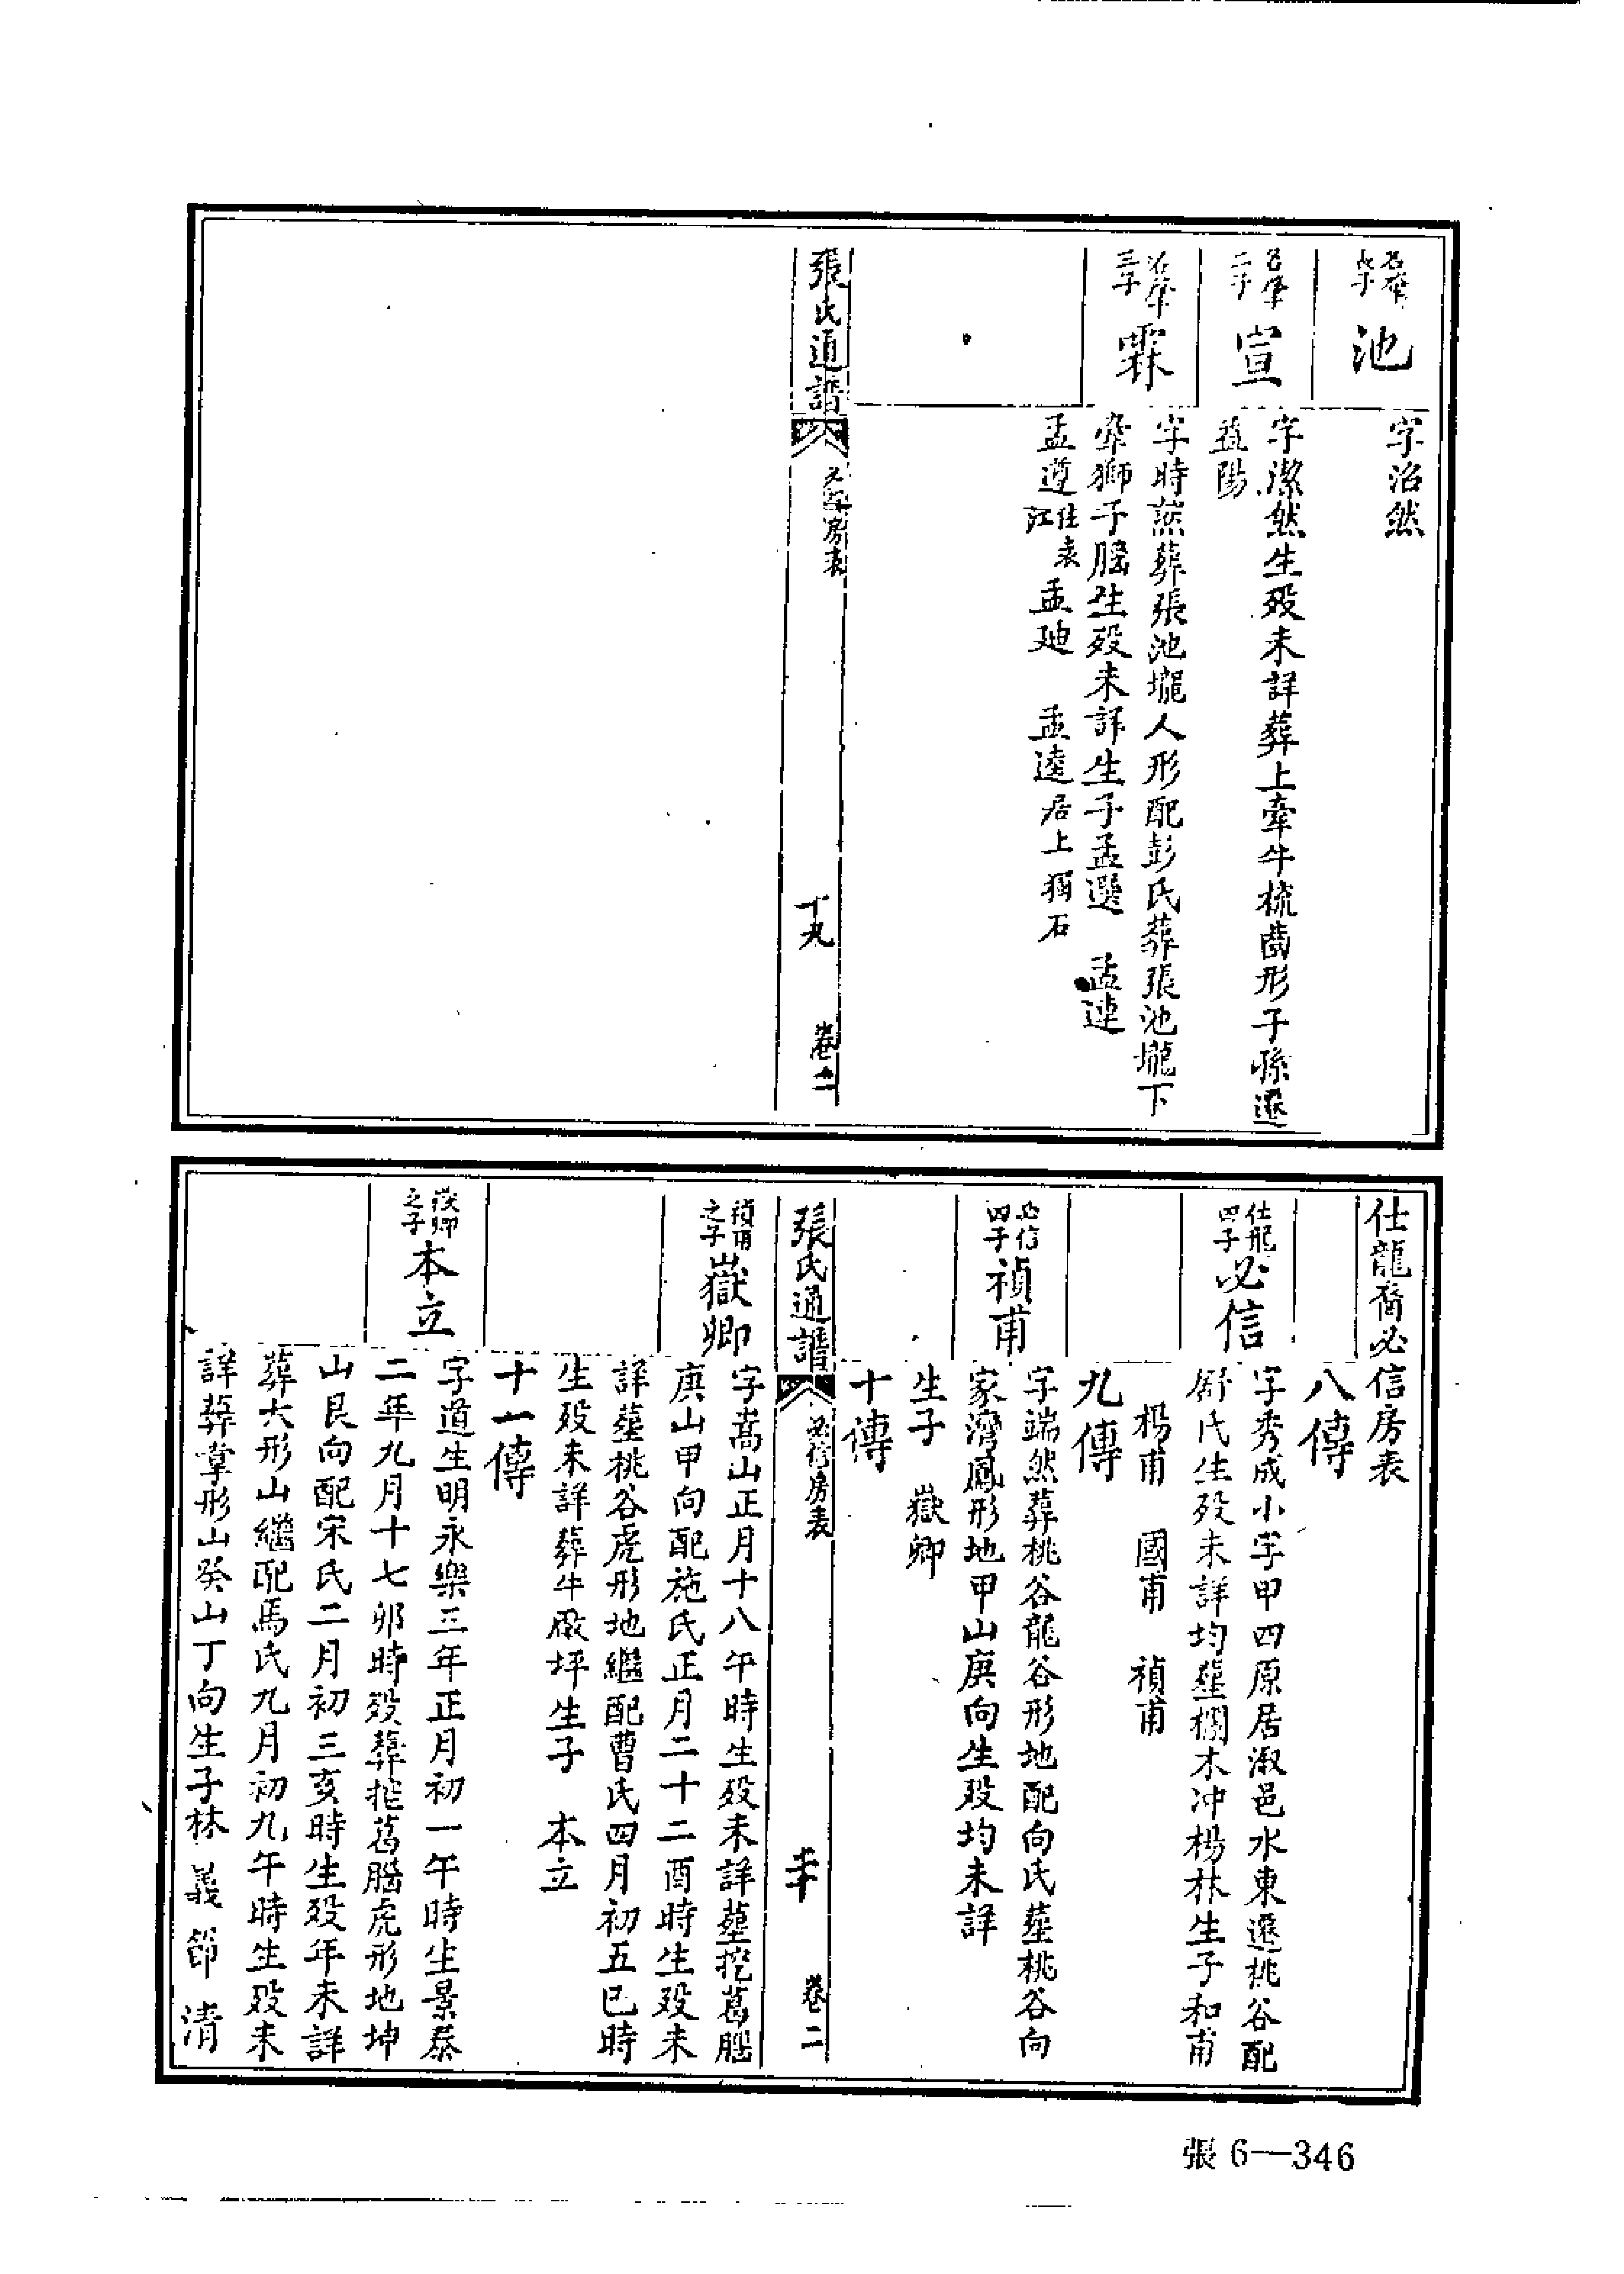 池
字治然
二子
宣
字潔然生歿未詳葬上牽牛梳齒形子孫遷
益陽
三子
霖
字時然葬張池壠人形配彭氏葬張池壠下
獅子腦生歿未詳生子孟選 孟連
孟遵 孟廸 孟逵居上獨石
張氏通譜
房表
十九
卷二
仕龍裔必信房表
八傳
仕龍四子
必信
字秀成小字甲四原居溆邑水東遷桃谷配
舒氏生歿未詳均塟棚木冲楊林生子和甫
楊甫 國甫 禎甫
九傳
必信四子
禎甫
字端然葬桃谷龍谷形地配向氏塟桃谷向
家灣鳳形地甲山庚向生歿均未詳
生子 嶽卿
十傳
張氏通譜
必信房表
二十
卷二
禎甫之子
嶽卿
字嵩山正月十八午時生歿未詳塟挖葛腦
庚山甲向配施氏正月二十二酉時生歿未
詳塟桃谷虎形地繼配曹氏四月初五巳時
生歿未詳葬牛廠坪生子 本立
十一傳
嶽卿之子
本立
字道生明永樂三年正月初一午時生景泰
二年九月十七卯時歿葬挖葛腦虎形地坤
山艮向配宋氏二月初三亥時生歿年未詳
葬大形山繼配馬氏九月初九午時生歿未
詳葬掌形山癸山丁向生子林 義 節 清
張 6—346